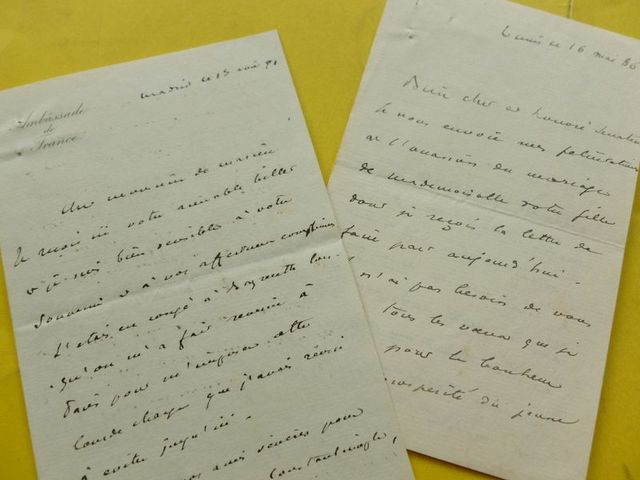 Ambassade
de
France
Madrid le 15 août 91
Cher monsieur de
Je reçois ici votre aimable billet
et je suis bien sensible à votre
souvenir et à vos affectueux compliments
J'étais en congé à
qu'on m'a fait revenir à
Paris pour m'imposer cette
lourde charge que j'avais réussi
à éviter jusqu'ici.
amis sincères pour
Constantinople,
Tunis le 16 mai 86
Bien cher et honoré
Je vous envoie mes félicitations
à l'occasion du mariage
de mademoiselle votre fille
dont je reçois la lettre de
faire part aujourd'hui.
n'ai pas besoin de vous
tous les vœux que je
pour le bonheur
prospérité du jeune